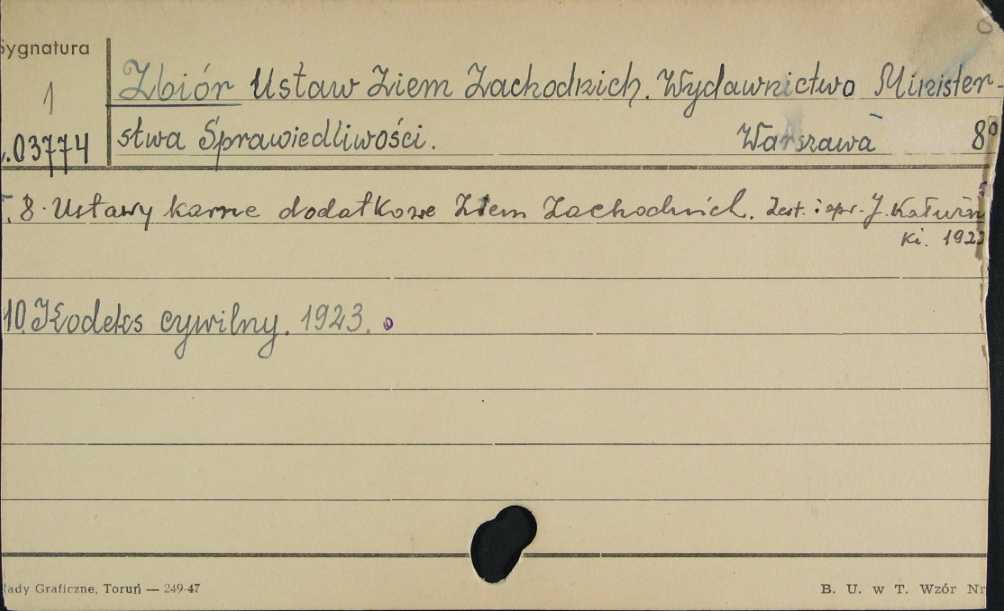 Sygnatura
1
.03774
Zbiór Ustaw Ziem Zachodnich. Wydawnictwo Minister-
stwa Sprawiedliwości. Warszawa 8°
T. 8. Ustawy karne dodatkowe Ziem Zachodnich. Zest. i opr. J. Kałużn
ki. 1923
10. Kodeks cywilny. 1923.
łady Graficzne, Toruń — 249-47
B. U. w T. Wzór Nr